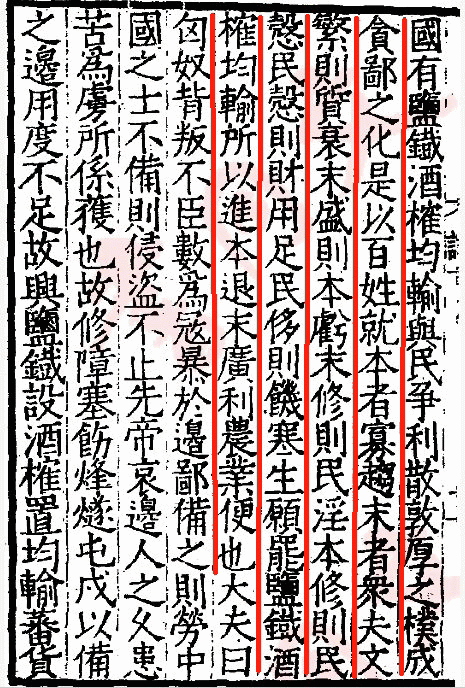 國有鹽鐵酒榷均輸與民爭利散敦厚之樸成
貪鄙之化是以百姓就本者寡趨末者衆夫文
繁則質衰末盛則本虧末修則民淫本修則民
慤民慤則財用足民侈則饑寒生願罷鹽鐵酒
榷均輸所以進本退末廣利農業便也大夫曰
匈奴背叛不臣數為冦暴於邊鄙備之則勞中
國之士不備則侵盜不止先帝哀邊人之久患
苦為虜所係獲也故修障塞飭烽燧屯戍以備
之邊用度不足故興鹽鐵設酒榷置均輸蕃貨